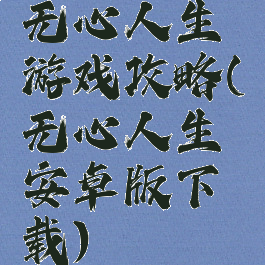 无心人生
游戏攻略(
无心人生
安卓版下
载)